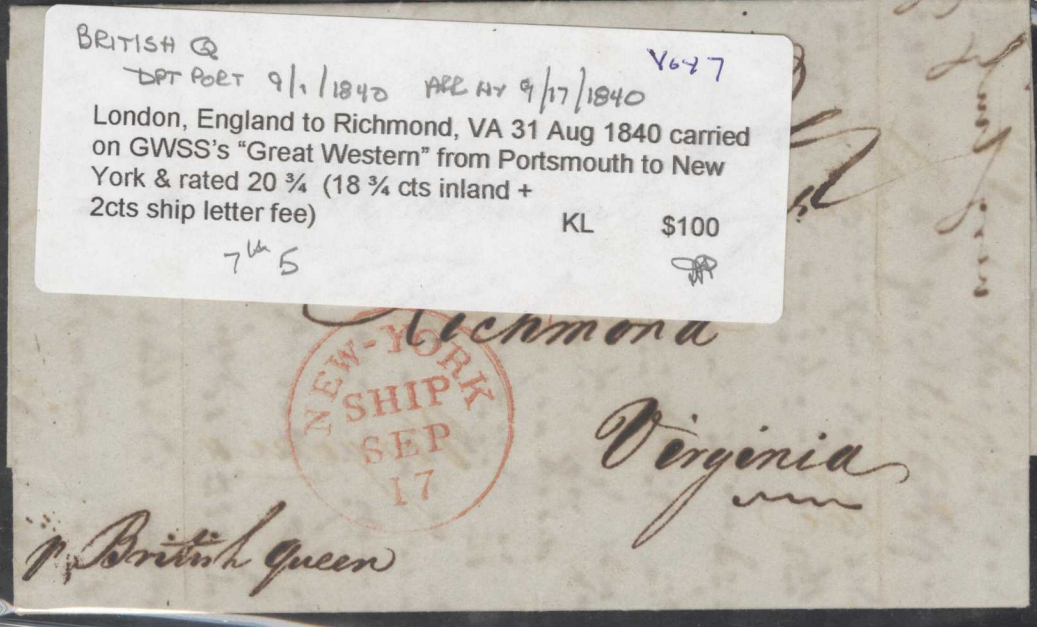 BRITISH Q
V647
DPT PORT 9/1/1840 ARR NY 9/17/1840
London, England to Richmond, VA 31 Aug 1840 carried
on GWSS's “Great Western” from Portsmouth to New
York & rated 20 ¾ (18 ¾ cts inland +
2cts ship letter fee)
KL $100
Richmond
NEW-YORK
SHIP
SEP
17
Virginia
p. British queen